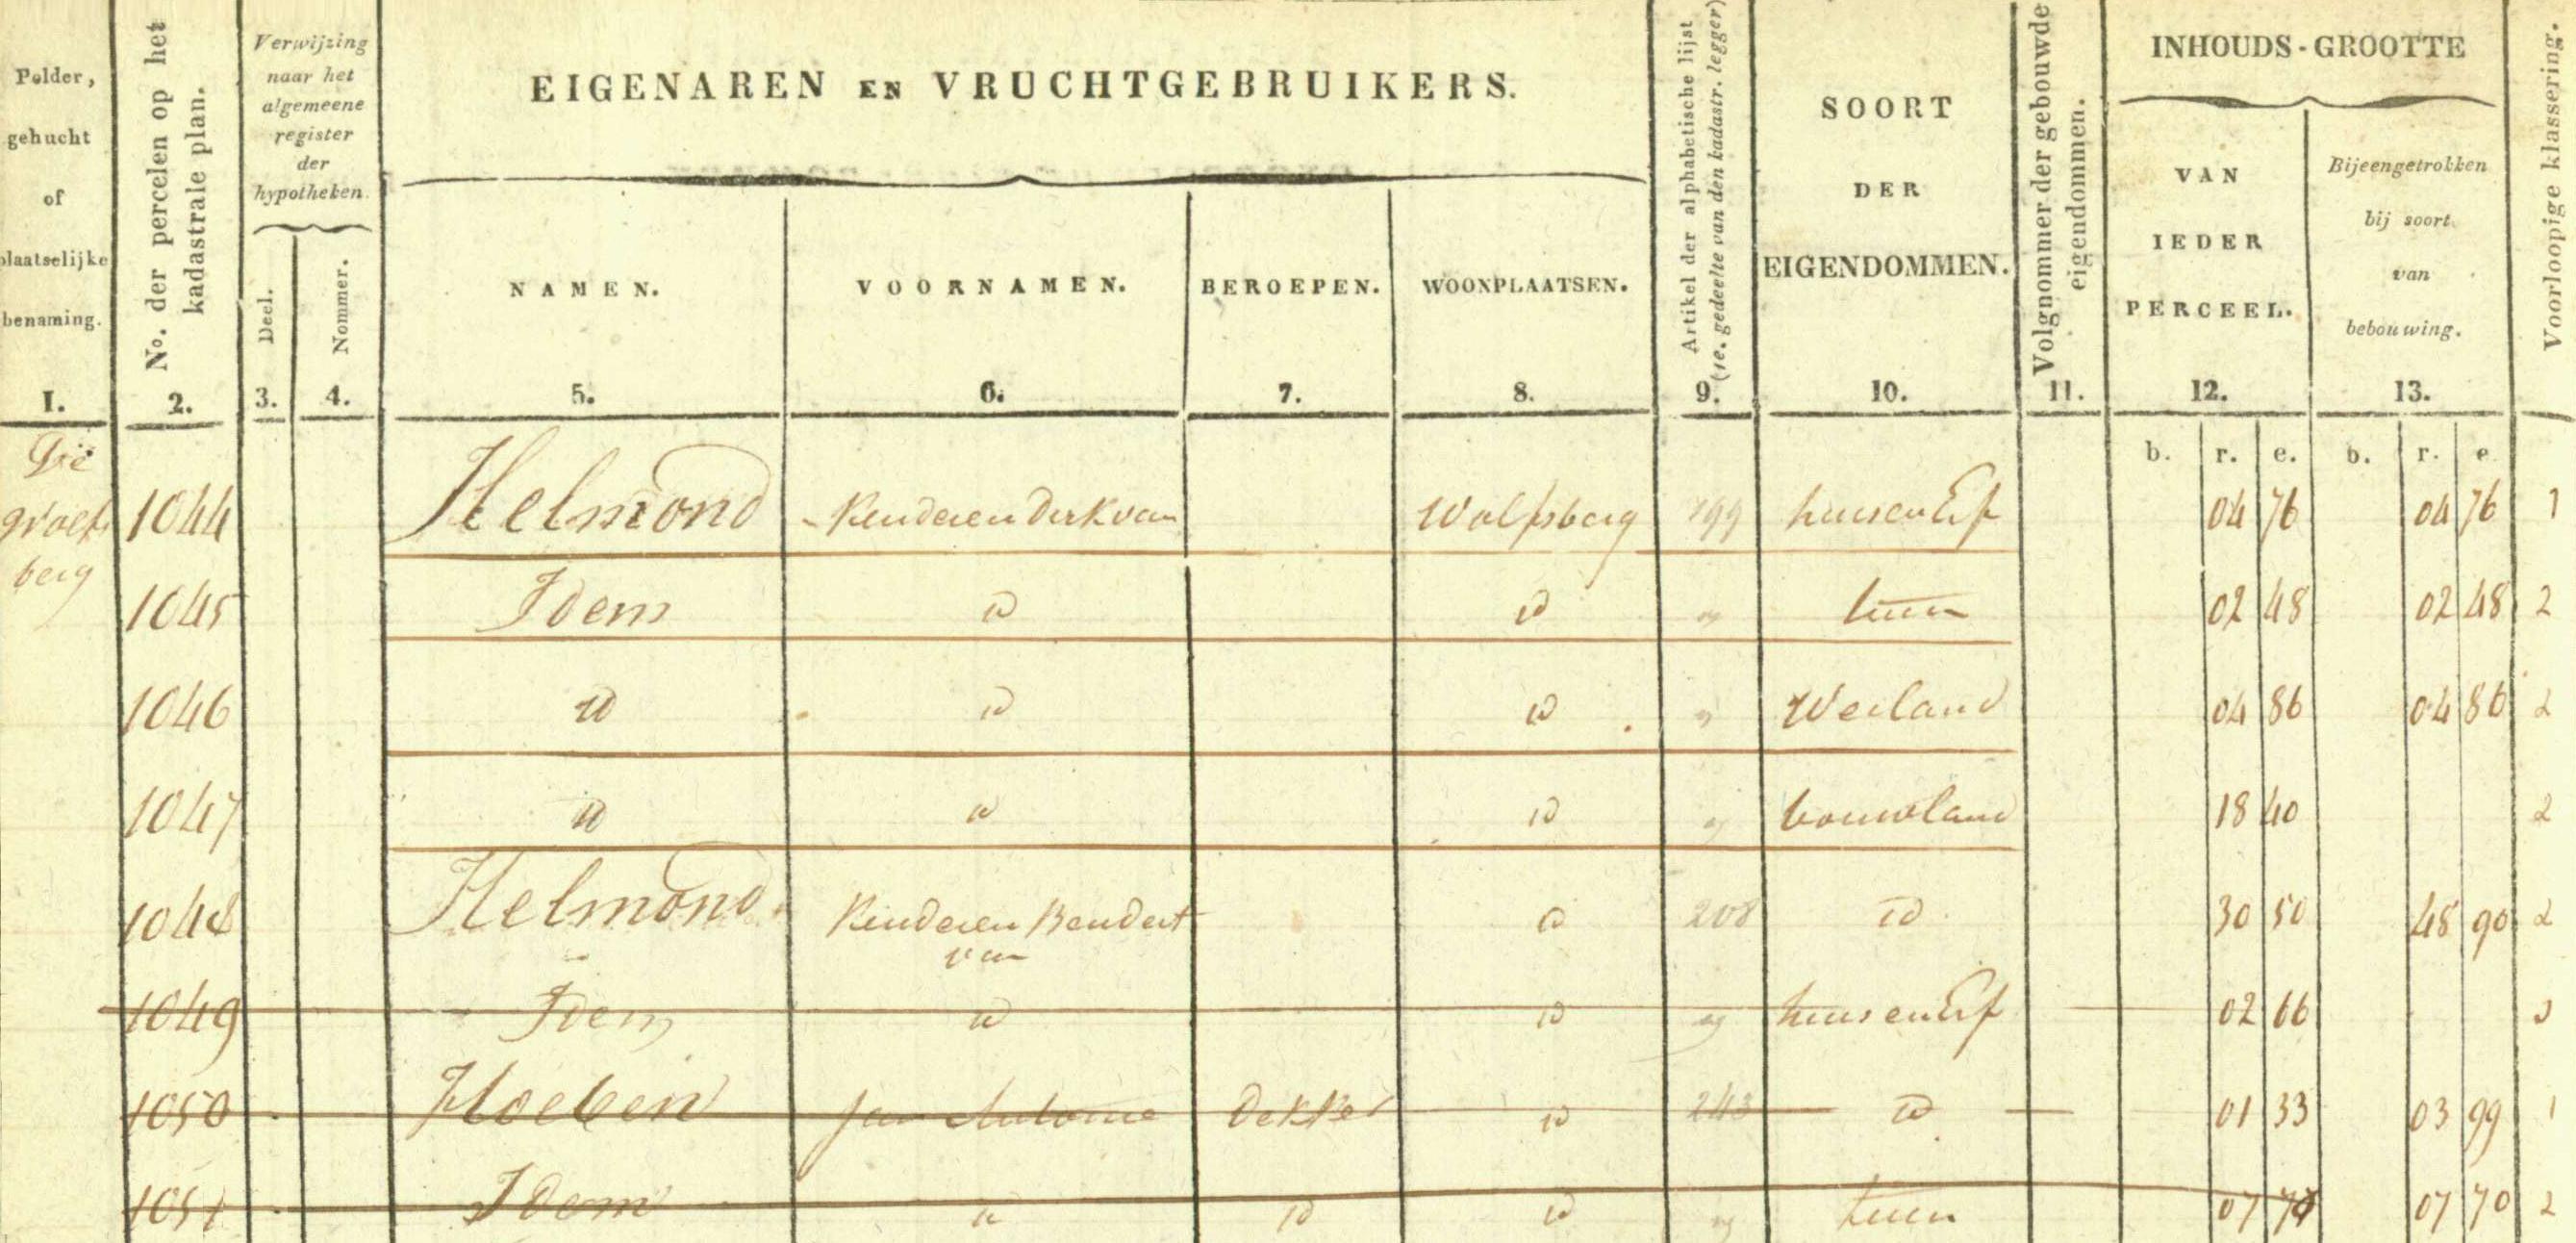 Polder,
gehucht
of
plaatselijke
benaming.
I.
No. der percelen op het
kadastrale plan.
2.
Verwijzing
naar het
algemeene
register
der
hypotheken.
Deel.
3.
Nommer.
4.
EIGENAREN EN VRUCHTGEBRUIKERS.
NAMEN.
5.
VOORNAMEN.
6.
BEROEPEN.
7.
WOONPLAATSEN.
8.
Artikel der alphabetische lijst
(1e. gedeelte van den kadastr. legger)
9.
SOORT
DER
EIGENDOMMEN.
10.
Volgnommer der gebouwde
eigendommen.
11.
INHOUDS-GROOTTE
VAN
IEDER
PERCEEL.
12.
Bijeengetrokken
bij soort
van
bebouwing.
13.
Voorloopige klassering.
b. r. e. b. r. e
Die
groes
berg
1044 Helmond Kinderen Dirk van Wolfsberg 199 huis en Erf 04 76 04 76 1
1045 Idem id id tuin 02 48 02 48 2
1046 id id id Weiland 04 86 04 86 2
1047 id id id bouwland 18 40 2
1048 Helmond Kinderen Bendert id 208 id 30 50 48 90 2
van
1049 Idem id id huis en Erf 02 66
1050 Hoeben Jan Antonie Dekker id 243 id 01 33 03 99 1
1051 Idem id id id tuin 07 70 07 70 2